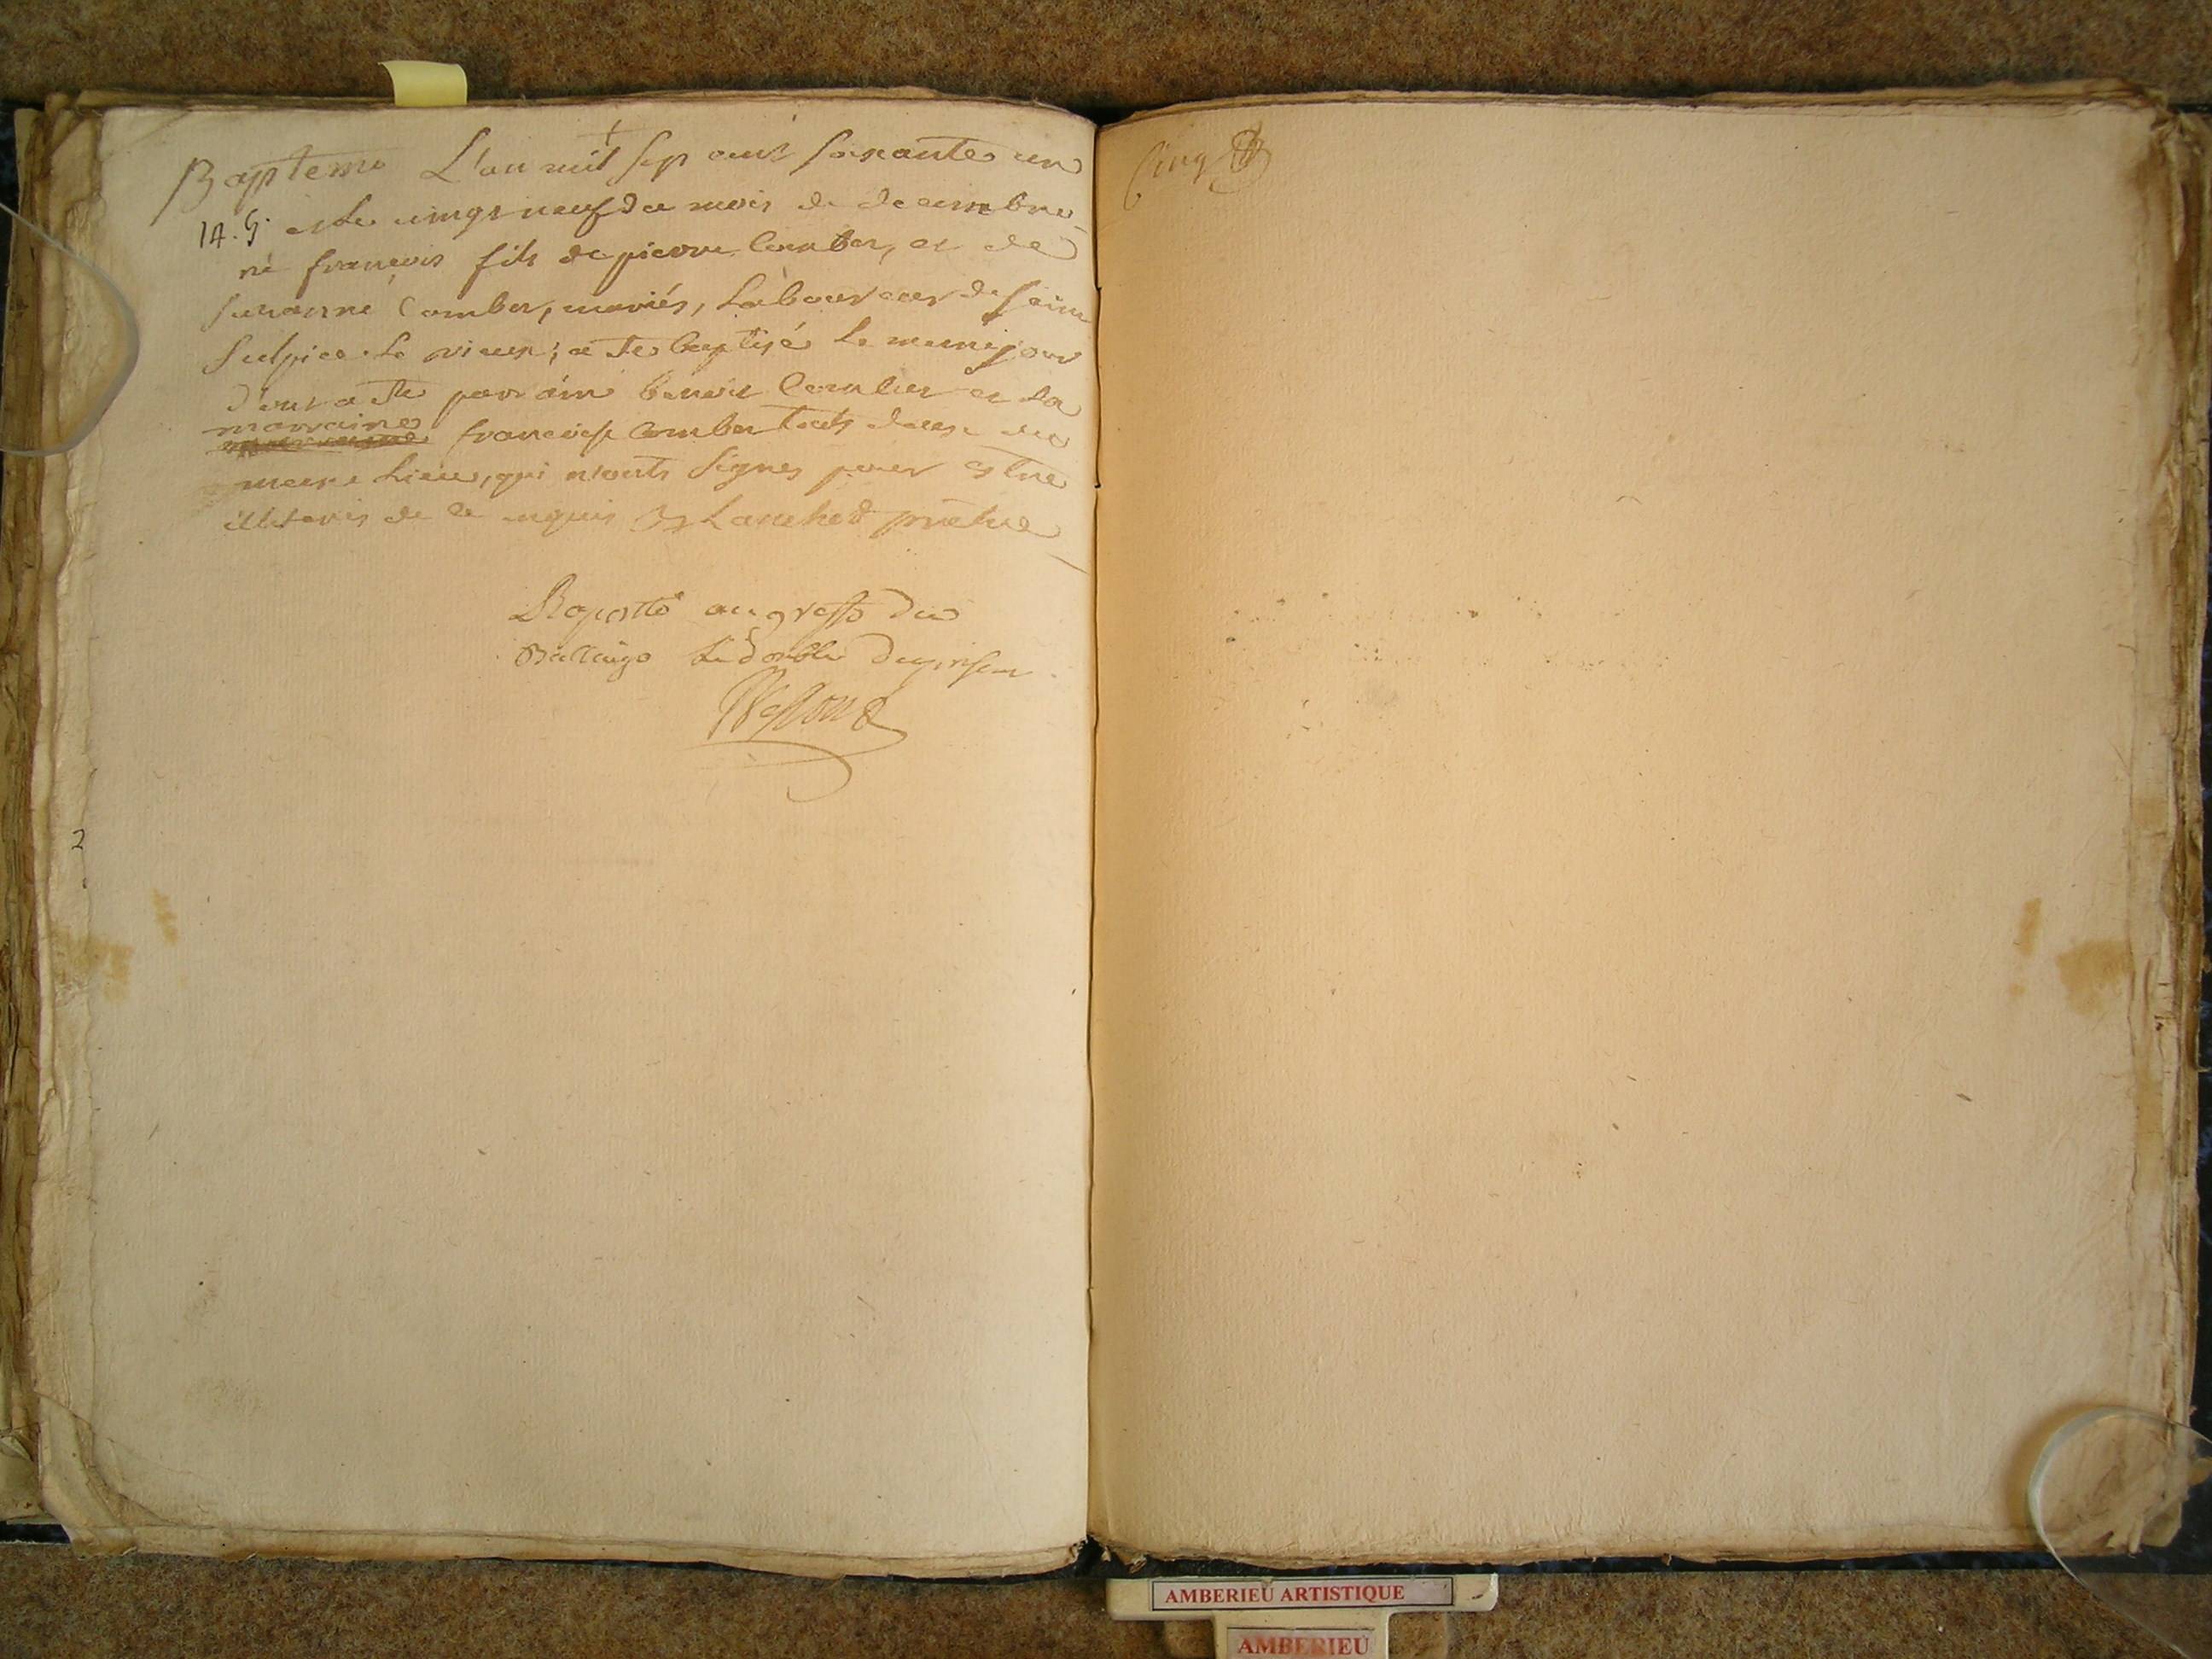 Bapteme L'an mil sept cent soixante un
14. G. et le vingt neuf du mois de decembre
né françois fils de pierre Comber, et de
Suzanne Comber, mariés, Laboureur de Saint
Sulpice le vieux; a ete baptisé le meme jour
dont a ete parrain benoit Comber et la
marraine françoise Comber touts deux du
meme Lieu, qui n'onts signes pour estre
illiteres de ce enquis prêtre
2
au greffe du
Bailliage le double
Cinq
AMBERIEU ARTISTIQUE
AMBERIEU